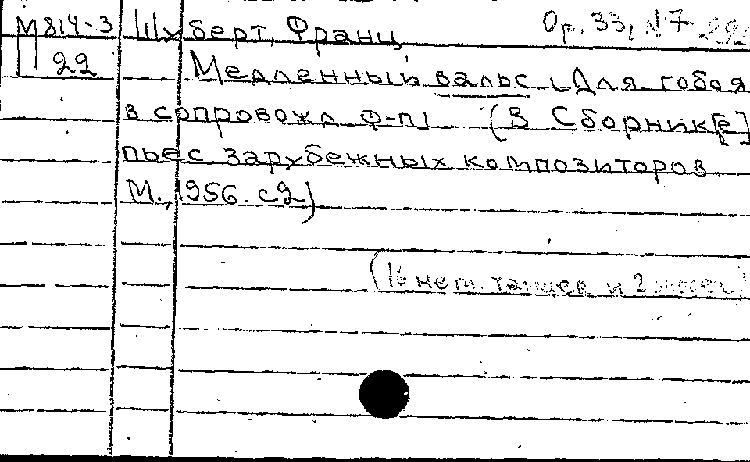 М814-3 Шуберт, Франц Op. 33, №7
П 22 Медленный вальс [Для гобоя
в сопровожд ф-п] (В Сборник[е]
пьес зарубежных композиторов
М., 1956. с2)
(16 нем. танцев и 2